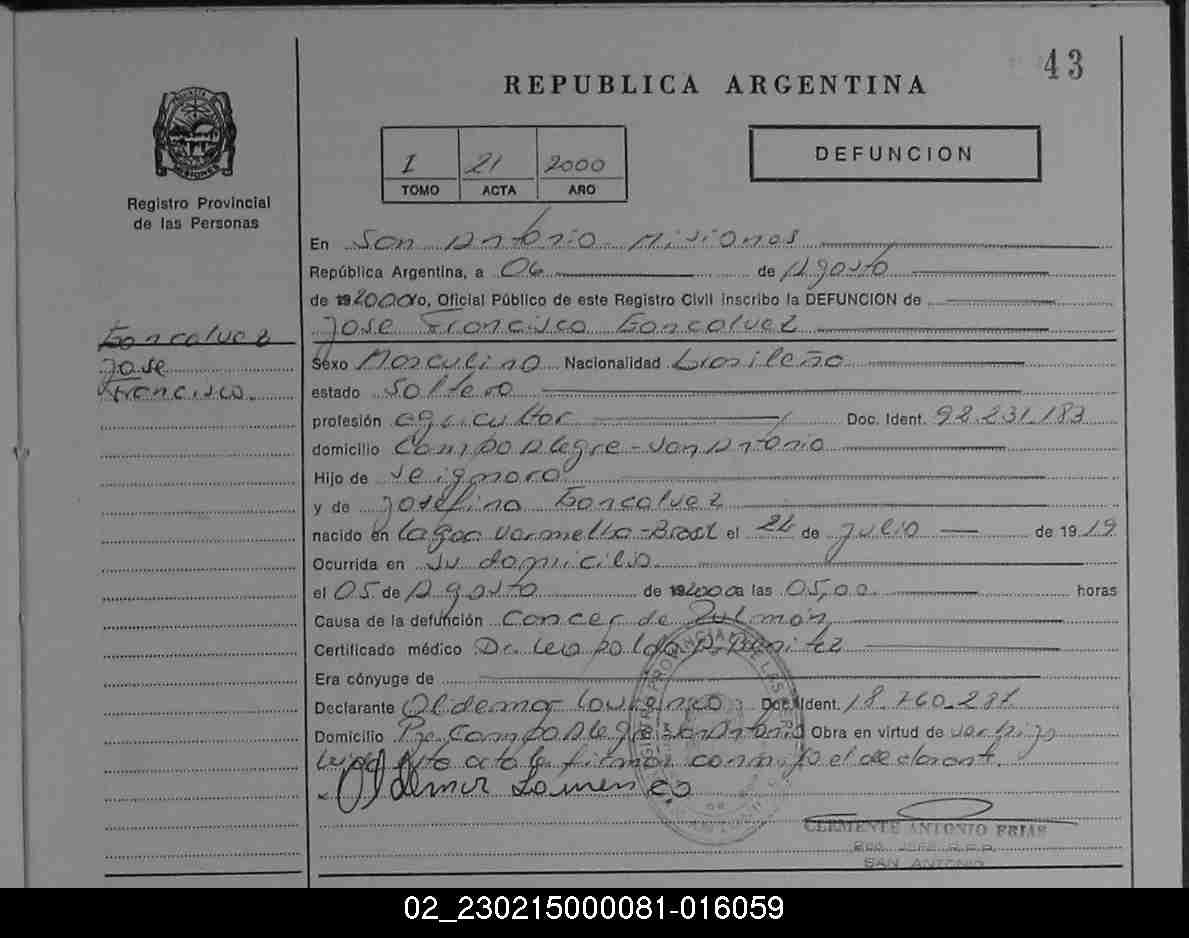 43
REPUBLICA ARGENTINA
I 21 2000
TOMO ACTA AÑO
DEFUNCION
Registro Provincial
de las Personas
En San Antonio Misiones
República Argentina, a 06 de Agosto
de 192000 yo, Oficial Público de este Registro Civil inscribo la DEFUNCION de
Jose Francisco Goncalvez
Goncalvez
Jose
Francisco.
Sexo Masculino Nacionalidad brasileña
estado Soltero
profesión agricultor Doc. Ident. 92.231.183
domicilio Campo Alegre - San Antonio
Hijo de se ignora
y de Josefina Goncalvez
nacido en Lagoa Vermelha - Brasil el 24 de Julio de 1919
Ocurrida en su domicilio.
el 05 de Agosto de 192000 a las 05,00 horas
Causa de la defunción Cancer de Pulmón
Certificado médico Dr. Leopoldo A. Benitez
Era cónyuge de
Declarante Oldemar Lourenco Doc. Ident. 18.760.287
Domicilio Pje. Campo Alegre San Antonio Obra en virtud de ser hijo
Leida esta acta la firman conmigo el declarant.
Oldemar Lourenco
CLEMENTE ANTONIO FRIAS
SAN ANTONIO
02_230215000081-016059